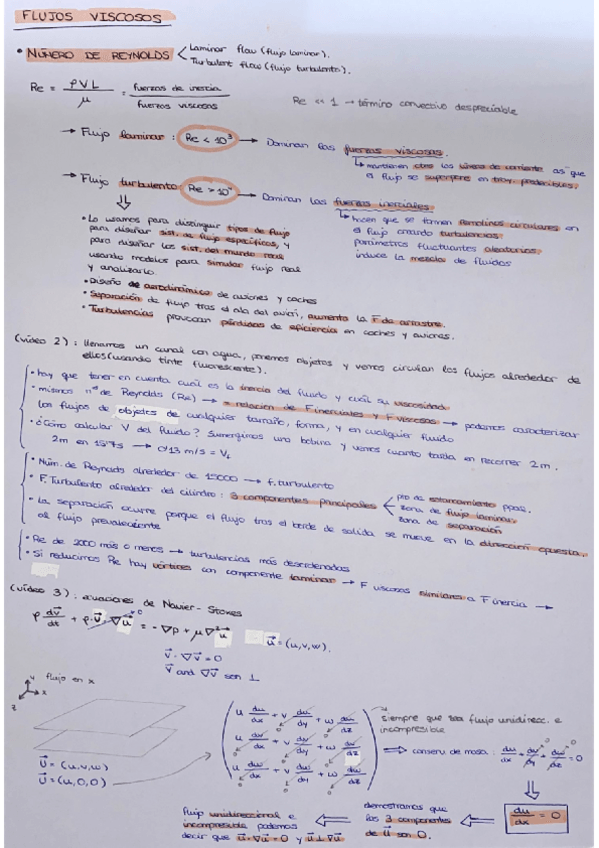 FLUJOS VISCOSOS
• NÚMERO DE REYNOLDS < Laminar flow (flujo laminar).
Turbulent flow (flujo turbulento).
Re = ρVL / μ = fuerzas de inercia / fuerzas viscosas
Re << 1 → término convectivo despreciable
→ Flujo laminar : Re < 10³ → Dominan las fuerzas viscosas.
↳ mantienen las líneas de corriente así que
el flujo se superpone en tray. predecibles.
→ Flujo turbulento Re > 10⁴ → Dominan las fuerzas inerciales
↳ hacen que se formen remolinos circulares en
el flujo creando turbulencias.
parámetros fluctuantes aleatorios.
induce la mezcla de fluidos
• Lo usamos para distinguir tipos de flujo
para diseñar sist. de flujo específicos, y
para diseñar los sist. del mundo real
usando modelos para simular flujo real
y analizarlo.
• Diseño de aerodinámica de aviones y coches
• Separación de flujo tras el ala del avión, aumenta la F de arrastre.
• Turbulencias provocan pérdidas de eficiencia en coches y aviones.
(vídeo 2) : llenamos un canal con agua, ponemos objetos y vemos circular los flujos alrededor de
ellos (usando tinte fluorescente).
• hay que tener en cuenta cuál es la inercia del fluido y cuál su viscosidad
• mismos nºs de Reynolds (Re) → = relación de F inerciales y F viscosas → podamos caracterizar
los flujos de objetos de cualquier tamaño, forma, y en cualquier fluido
• ¿Cómo calcular V del fluido? Sumergimos una bobina y vemos cuanto tarda en recorrer 2m.
2m en → 0'13 m/s = V₁
• Núm. de Reynolds alrededor de 15000 → f. turbulento
• F. Turbulento alrededor del cilindro : 3 componentes principales < pto de estancamiento ppal.
zona de flujo laminar.
zona de separación
• La separación ocurre porque el flujo tras el borde de salida se mueve en la dirección opuesta.
al flujo prevaleciente
• Re de 2000 más o menos → turbulencias más desordenadas
• Si reducimos Re hay vórtices con componente laminar → F viscosas similares a F inercia →
(vídeo 3) : ecuaciones de Navier-Stokes
ρ dv⃗/dt + ρ·v⃗·∇u⃗ = -∇p + μ∇²u⃗
u⃗ = (u,v,w).
v⃗ · ∇v⃗ = 0
v⃗ and ∇v⃗ son ⊥
y flujo en x
x
z
u du/dx + v du/dy + w du/dz
siempre que sea flujo unidirecc. e
incompresible
u dv/dx + v dv/dy + w dv/dz
⇒ conserv. de masa : du/dx + dv/dy + dw/dz = 0
u dw/dx + v dw/dy + w dw/dz
v⃗ = (u,v,w)
v⃗ = (u,0,0)
du/dx = 0
demostramos que
las 3 componentes
de u⃗ son 0.
flujo unidireccional e
incompresible podemos
decir que u⃗·∇u⃗ = 0 y u⃗ ⊥ ∇u⃗